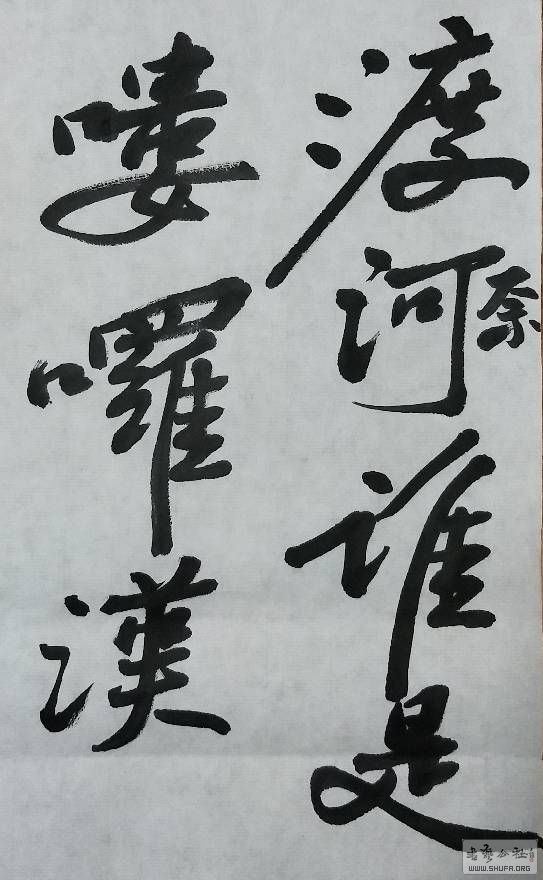 渡河奈誰是
嘍囉漢
书艺公社
WWW.SHUFA.ORG